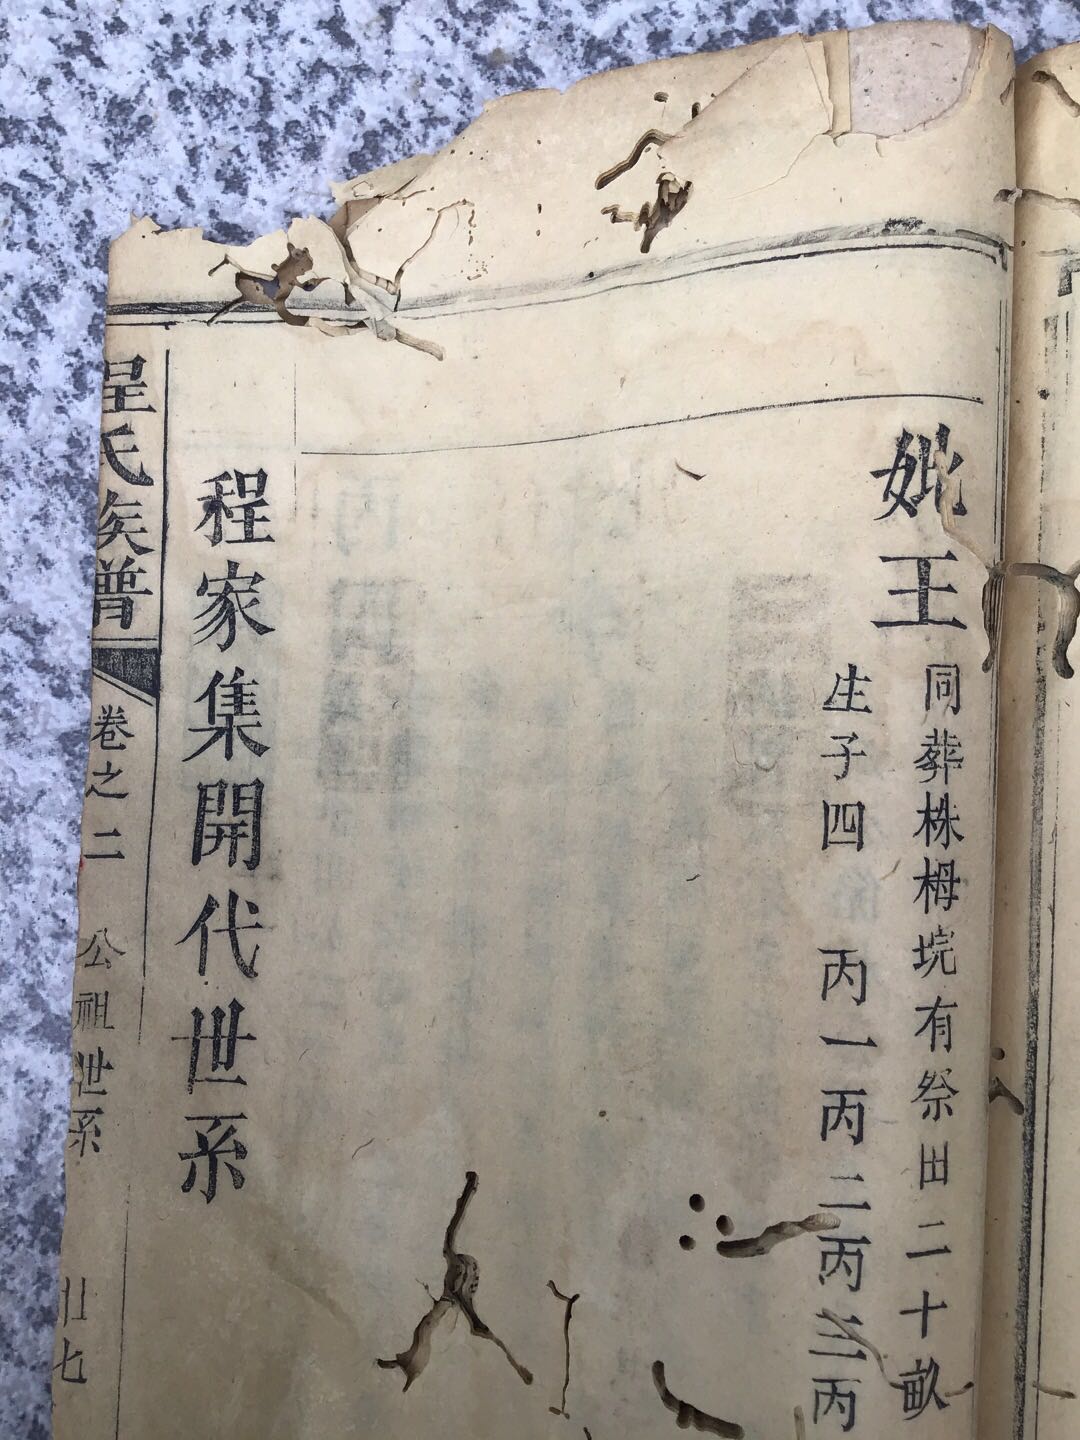 妣王
同葬株栂垸有祭田二十畝
生子四 丙一丙二丙三丙
程家集開代世系
程氏族譜
卷之二
公祖世系
廿七